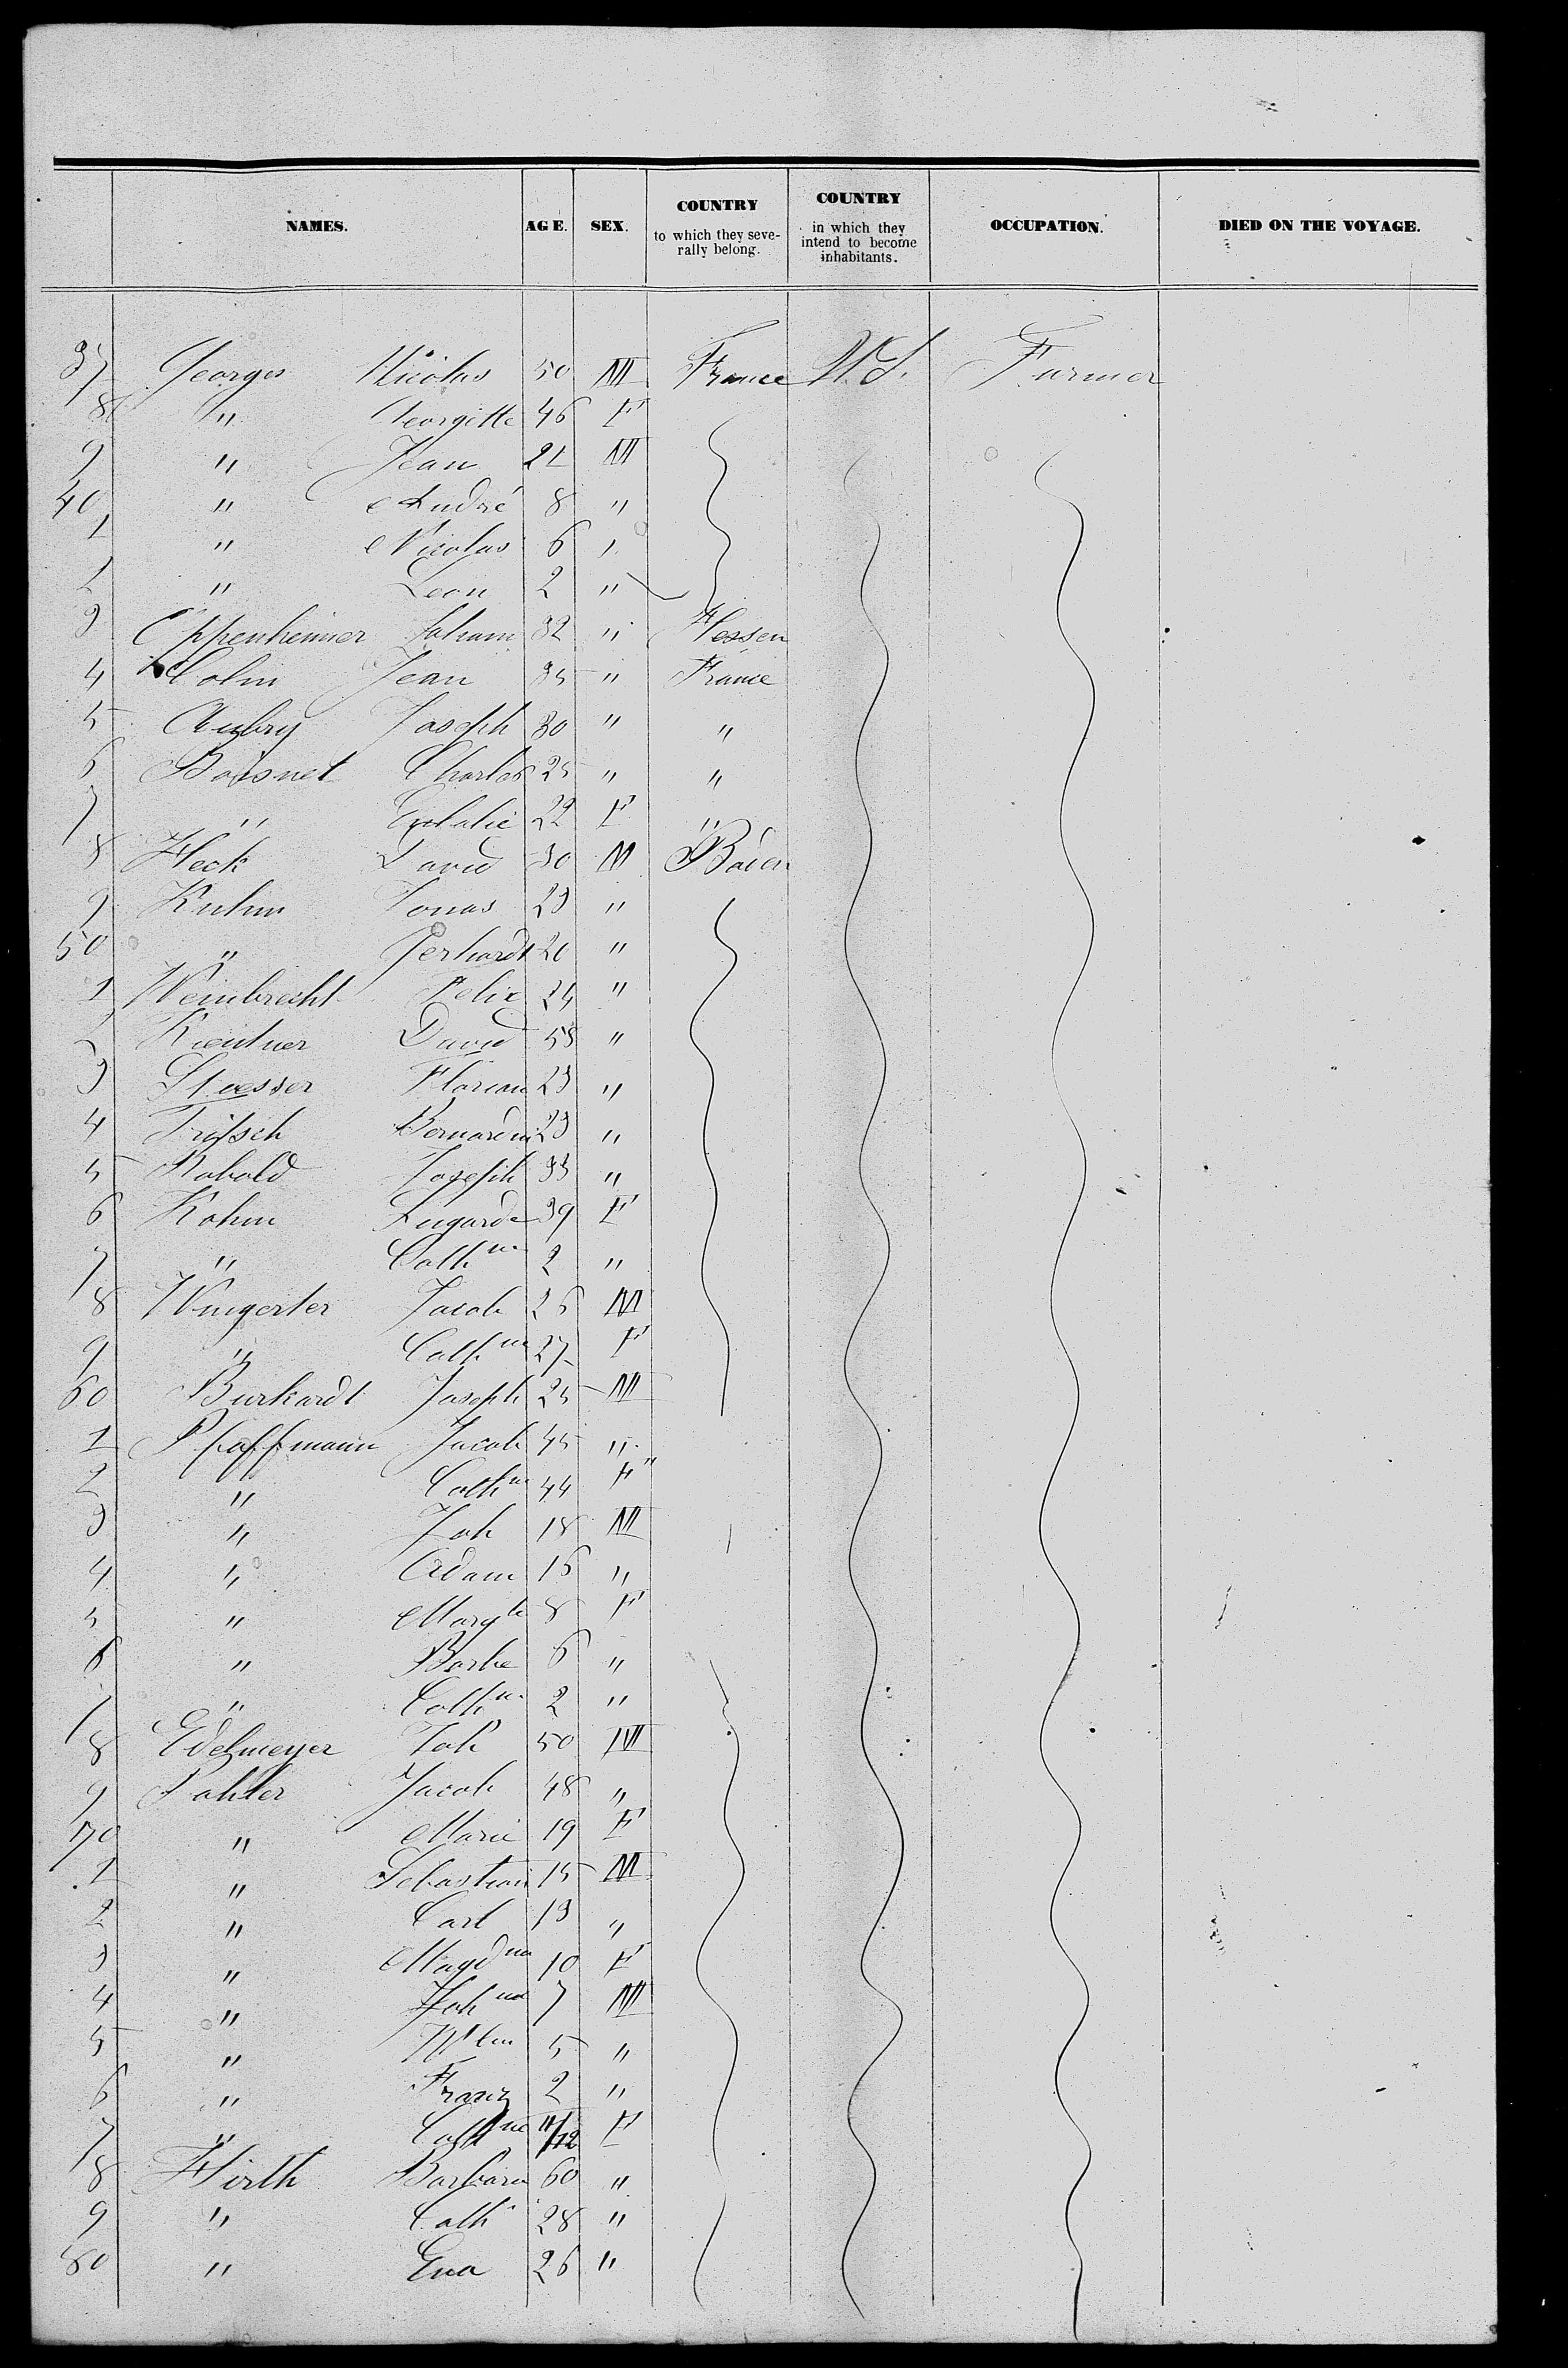 NAMES. AGE. SEX. COUNTRY to which they severally belong. COUNTRY in which they intend to become inhabitants. OCCUPATION. DIED ON THE VOYAGE.
37 Georges Nicolas 50 M France U.S. Farmer
8 " Georgette 46 F
9 " Jean 21 M
40 " André 8 "
1 " Nicolas 6 "
2 " Leon 2 "
3 Oppenheimer 32 " Hessen
4 Colin Jean 35 " France
5 Aubry Joseph 30 " "
6 Boisnet Charles 25 " "
7 " Eulalie 22 F "
8 Heck David 30 M Baden
9 Kuhm Jonas 23 "
50 " Gerhardt 20 "
1 Weinbrecht Felix 24 "
2 David 53 "
3 Stoesser Florian 23 "
4 Fritsch Bernardin 23 "
5 Robold Joseph 33 "
6 Kohm Lugarde 39 F
7 " Cathne 2 "
8 Wingerter Jacob 26 M
9 " Cathne 27 F
60 Burkardt Joseph 25 M
1 Pfaffmann Jacob 45 "
2 " Cathne 44 F "
3 " Joh 18 M
4 " Adam 16 "
5 " Margte 8 F
6 " Barbe 6 "
7 " Cathne 2 "
8 Edelmeyer Joh 50 M
9 Pahler Jacob 48 "
70 " Marie 19 F
1 " Sebastian 15 M
2 " Carl 13 "
3 " Magdna 10 F
4 " Johna 7 M
5 " Wlm 5 "
6 " Franz 2 "
7 " Cathne 11/12 F
8 Hirth Barbara 60 "
9 " Cath 28 "
80 " Eva 26 "